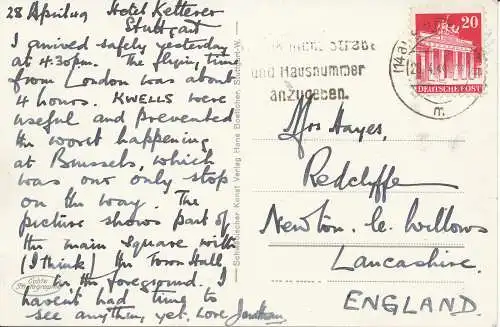 28 April 49 Hotel Ketterer
Stuttgart
I arrived safely yesterday
at 4.30pm. The flying time
from London was about
4 hours. KWELLS were
useful and prevented
the worst happening
at Brussels, which
was our only stop
on the way. The
picture shows part of
the main square with
(I think) the Town Hall
in the foreground. I
haven't had time to
see anything yet. Love Jonathan
Echte Photographie
Schwäbischer Kunst Verlag Hans Boettcher, Stuttgart-W.
nicht, Straße
und Hausnummer
anzugeben.
(14a)
20
DEUTSCHE POST
m
Mrs Hayes,
Redcliffe,
Newton-le-Willows
Lancashire.
ENGLAND.